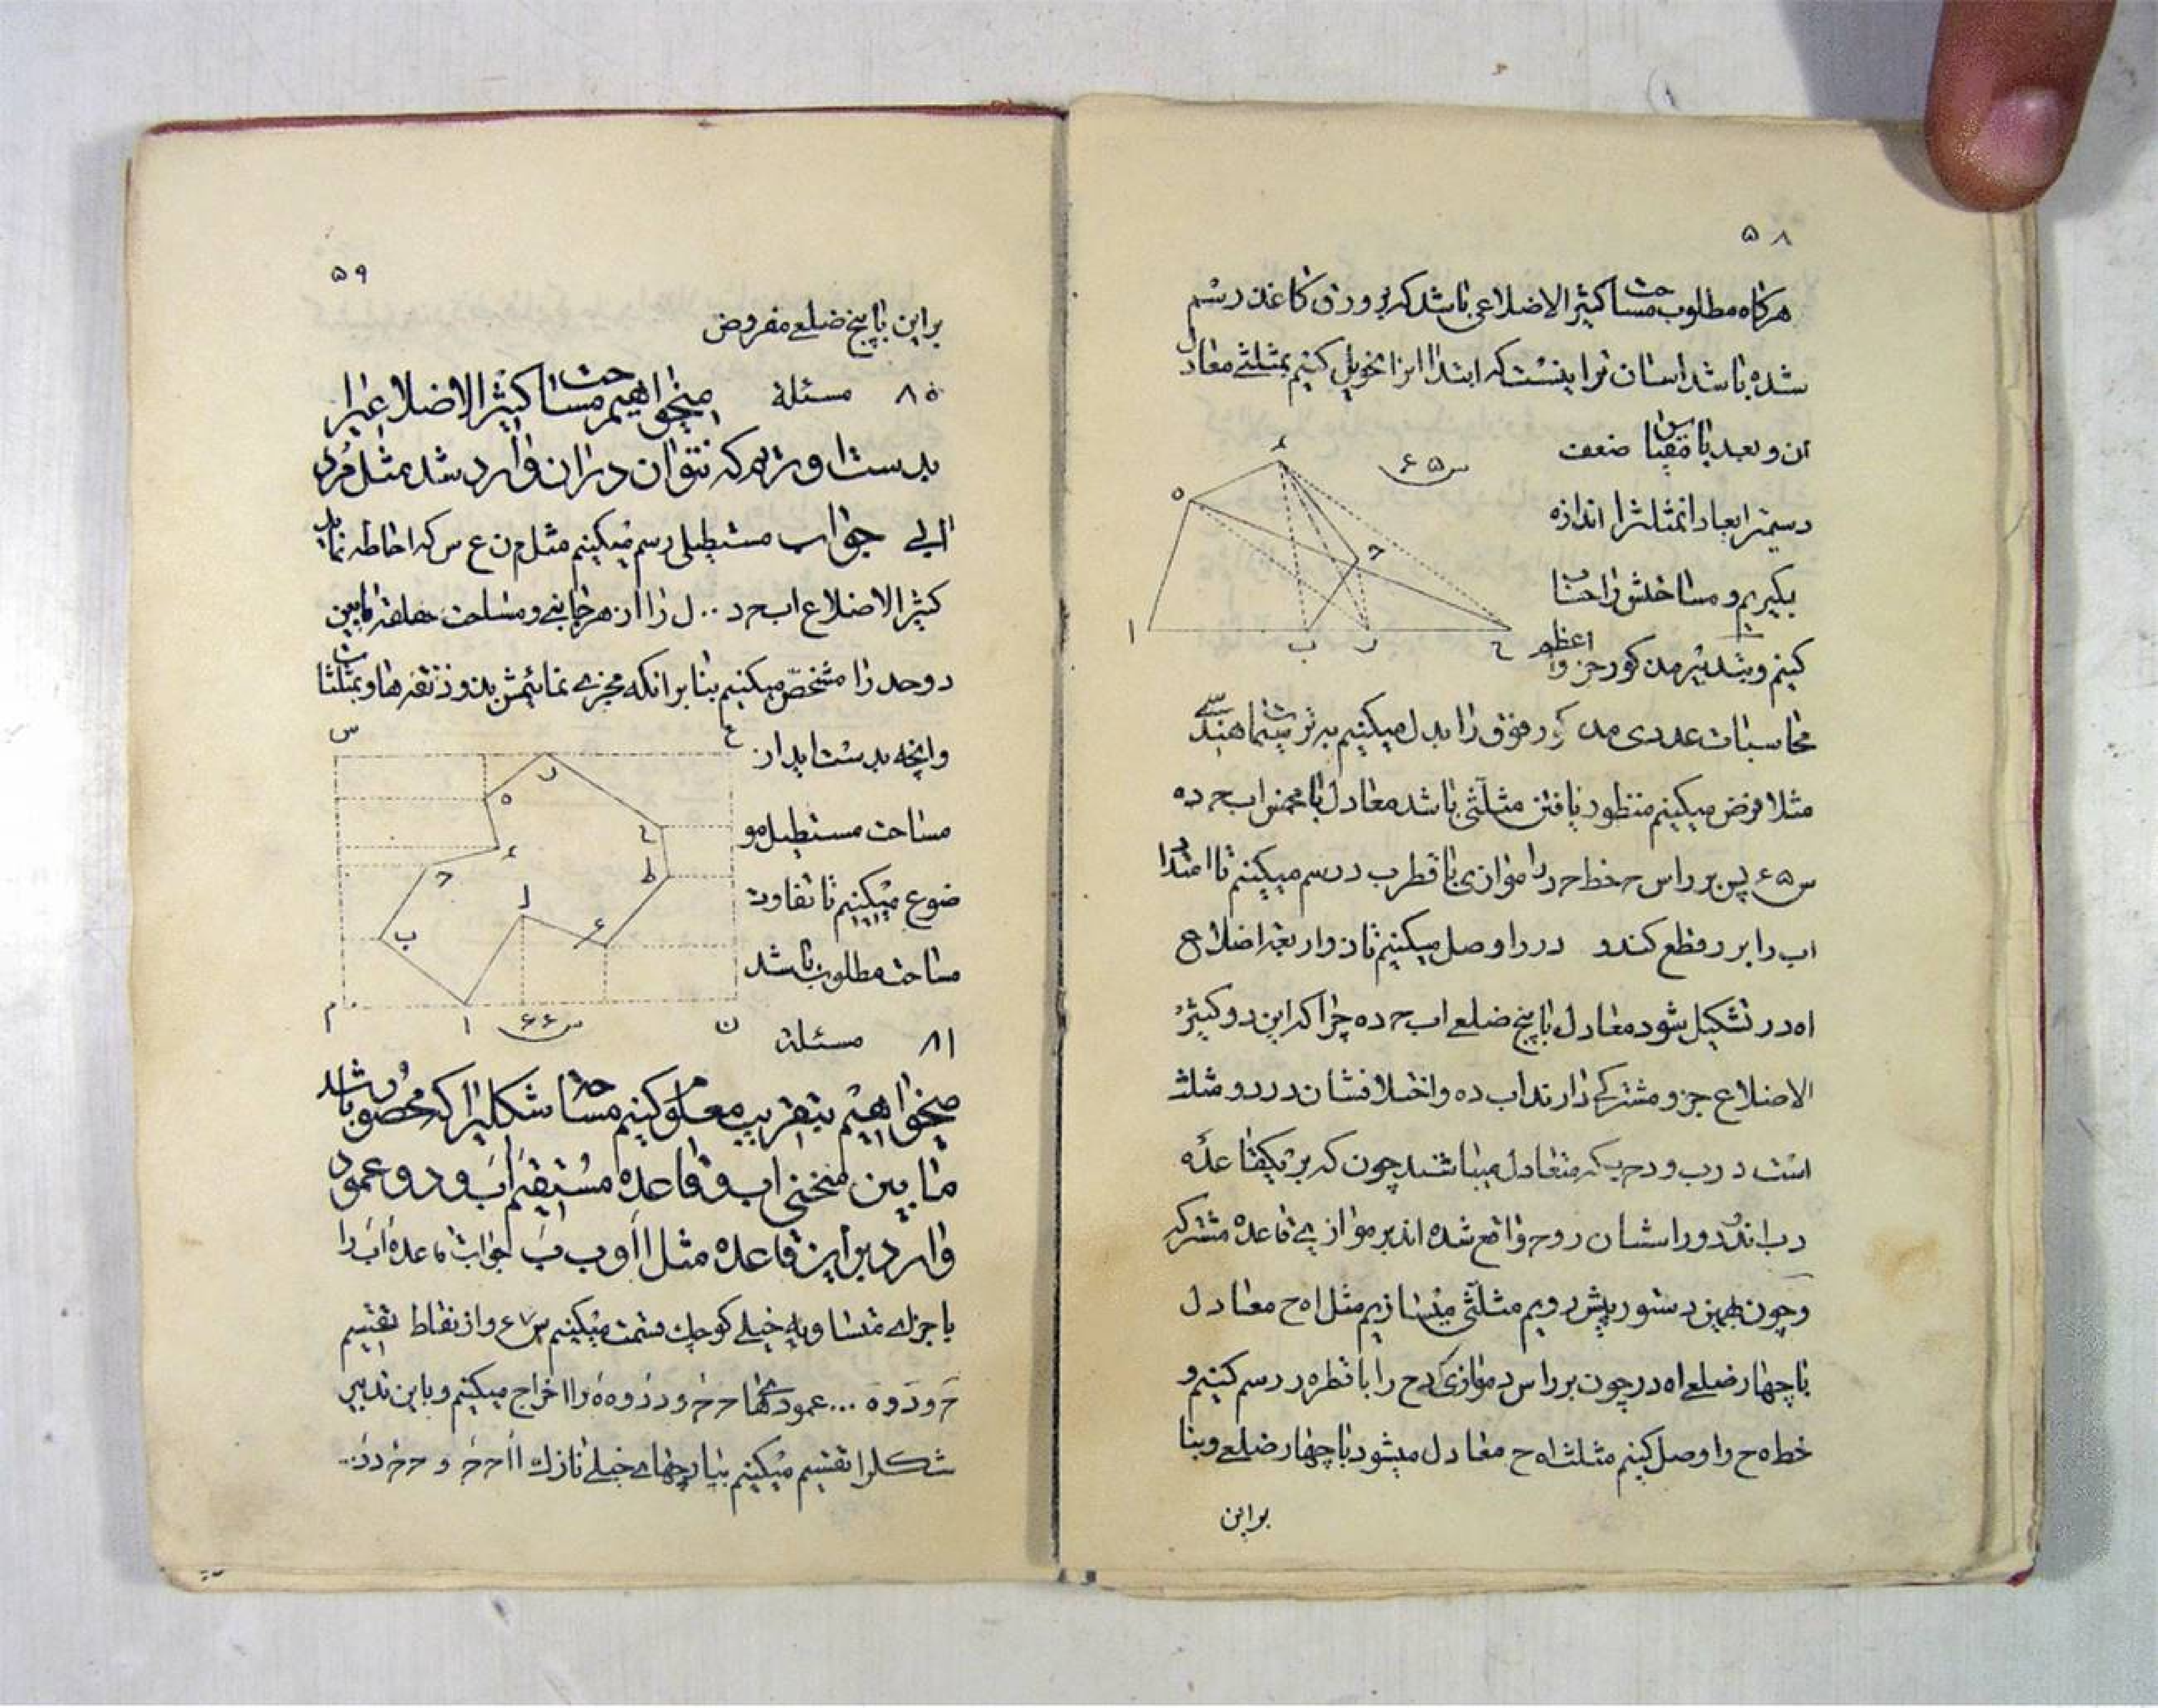 ۵۸
هرکاه مطلوب مساحت کثیر الاضلاعی باشد که بر ورق کاغذ رسم
شده باشد اسان تر اینست که ابتدا انرا تحویل کنیم بمثلثی معادل
ان و بعد با مقیاس ضعف
س ۶۵
دسیمتر ابعاد انمثلث را اندازه
بکیریم و مساحتش را حساب
کنیم و بتدبیر مذکور جزو اعظم
محاسبات عددی مذکور فوق را بدل میکنیم به ترسیمات هندسی
مثلا فرض میکنیم منظور یافتن مثلثی باشد معادل با مخمس اب ح د ه
س ۶۵ پس بر راس ح خط ح ر را موازی با قطر ب د رسم میکنیم تا امتداد
اب را بر ر قطع کند و د ر را وصل میکنیم تا ذو اربعة اضلاع
اه د ر تشکیل شود معادل با پنج ضلعی اب ح د ه چرا که این دو کثیر
الاضلاع جزو مشترکی دارند اب د ه و اختلافشان در دو مثلث
است د ر ب و د ح ب که متعادل میباشند چون که بر یکقاعده
د ب اند و دو راسشان ر و ح واقع شده اند بر موازی قاعده مشترکه
و چون بهمین دستور پیش رویم مثلثی میسازیم مثل اه ح معادل
با چهار ضلعی اه د ر چون بر راس د موازی د ح را با قطر ه ر رسم کنیم و
خط ه ح را وصل کنیم مثلث اه ح معادل میشود با چهار ضلعی و بنا
بر این
۵۹
بر این با پنج ضلعی مفروض
۸۰ مسئلة میخواهیم مساحت کثیر الاضلاعی را
بدست اوریم که نتوان در ان وارد شد مثل
ابی جواب مستطیلی رسم میکنیم مثل م ن ع س که احاطه نماید
کثیر الاضلاع اب ح د .. ل را از هر جانبی و مساحت ما بین
دو حد را مشخص میکنیم بنا بر انکه مجزی نمائیمش بذوذنقه ها و بمثلثات
و انچه بدست اید از
مساحت مستطیل مو
ضوع میکنیم تا تفاوت
مساحت مطلوب باشد
س ۶۶
۸۱ مسئلة
میخواهیم بتقریب معلوم کنیم مساحت شکلیرا که محصور باشد
ما بین منحنی اب و قاعده مستقیم اَبَ و دو عمود
وارد بر این قاعده مثل ااَ و ب بَ جواب قاعده اَبَ را
باجزای متساویه خیلی کوچک قسمت میکنیم س ۶۷ و از نقاط تقسیم
حَ و دَ و هَ ... عمود های ح حَ و د دَ و ه هَ را اخراج میکنیم و باین تدبیر
شکلرا تقسیم میکنیم بپارچهای خیلی نازک ااَ ح حَ و ح حَ د دَ ...